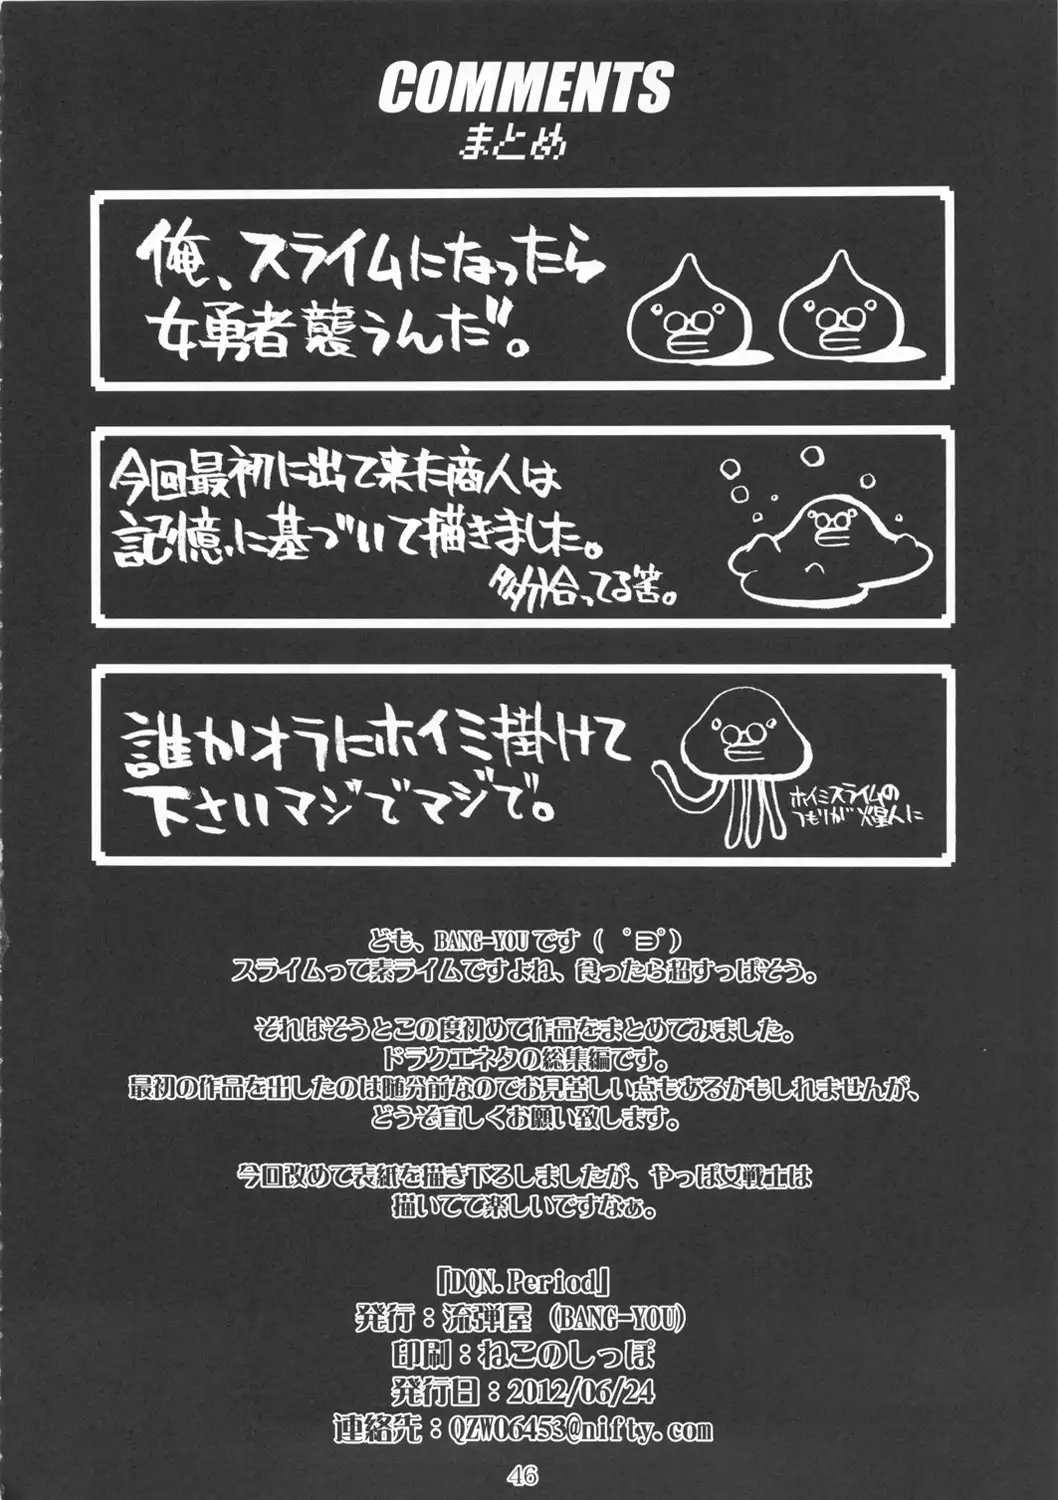 COMMENTS
まとめ
俺、スライムになったら
女勇者襲うんだ。
今回最初に出て来た商人は
記憶に基づいて描きました。
多分合ってる筈。
誰かオラにホイミ掛けて
下さいマジでマジで。
ホイミスライムの
つもりが火星人に
ども、BANG-YOUです( ゜∋゜)
スライムって素ライムですよね、食ったら超すっぱそう。
それはそうとこの度初めて作品をまとめてみました。
ドラクエネタの総集編です。
最初の作品を出したのは随分前なのでお見苦しい点もあるかもしれませんが、
どうぞ宜しくお願い致します。
今回改めて表紙を描き下ろしましたが、やっぱ女戦士は
描いてて楽しいですなぁ。
『DQN.Period』
発行：流弾屋（BANG-YOU）
印刷：ねこのしっぽ
発行日：2012/06/24
連絡先：QZW06453@nifty.com
46